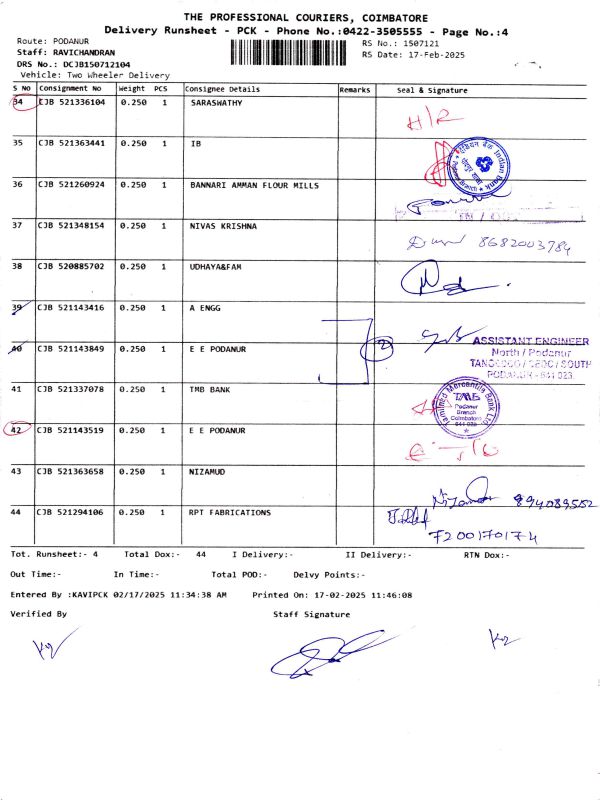 THE PROFESSIONAL COURIERS, COIMBATORE
Delivery Runsheet - PCK - Phone No.:0422-3505555 - Page No.:4
Route: PODANUR RS No.: 1507121
Staff: RAVICHANDRAN RS Date: 17-Feb-2025
DRS No.: DCJB150712104
Vehicle: Two Wheeler Delivery
S No Consignment No Weight PCS Consignee Details Remarks Seal & Signature
34 CJB 521336104 0.250 1 SARASWATHY
35 CJB 521363441 0.250 1 IB
Indian Bank
36 CJB 521260924 0.250 1 BANNARI AMMAN FLOUR MILLS
37 CJB 521348154 0.250 1 NIVAS KRISHNA 8682003784
38 CJB 520885702 0.250 1 UDHAYA&FAM
39 CJB 521143416 0.250 1 A ENGG
40 CJB 521143849 0.250 1 E E PODANUR 2
ASSISTANT ENGINEER
North / Podanur
TANGEDCO / CEDC / SOUTH
PODANUR - 641 023.
41 CJB 521337078 0.250 1 TMB BANK
Tamilnad Mercantile Bank Ltd.
TMB
Podanur
Branch
Coimbatore
641 023
42 CJB 521143519 0.250 1 E E PODANUR
43 CJB 521363658 0.250 1 NIZAMUD
44 CJB 521294106 0.250 1 RPT FABRICATIONS
7200170174
Tot. Runsheet:- 4 Total Dox:- 44 I Delivery:- II Delivery:- RTN Dox:-
Out Time:- In Time:- Total POD:- Delvy Points:-
Entered By :KAVIPCK 02/17/2025 11:34:38 AM Printed On: 17-02-2025 11:46:08
Verified By Staff Signature